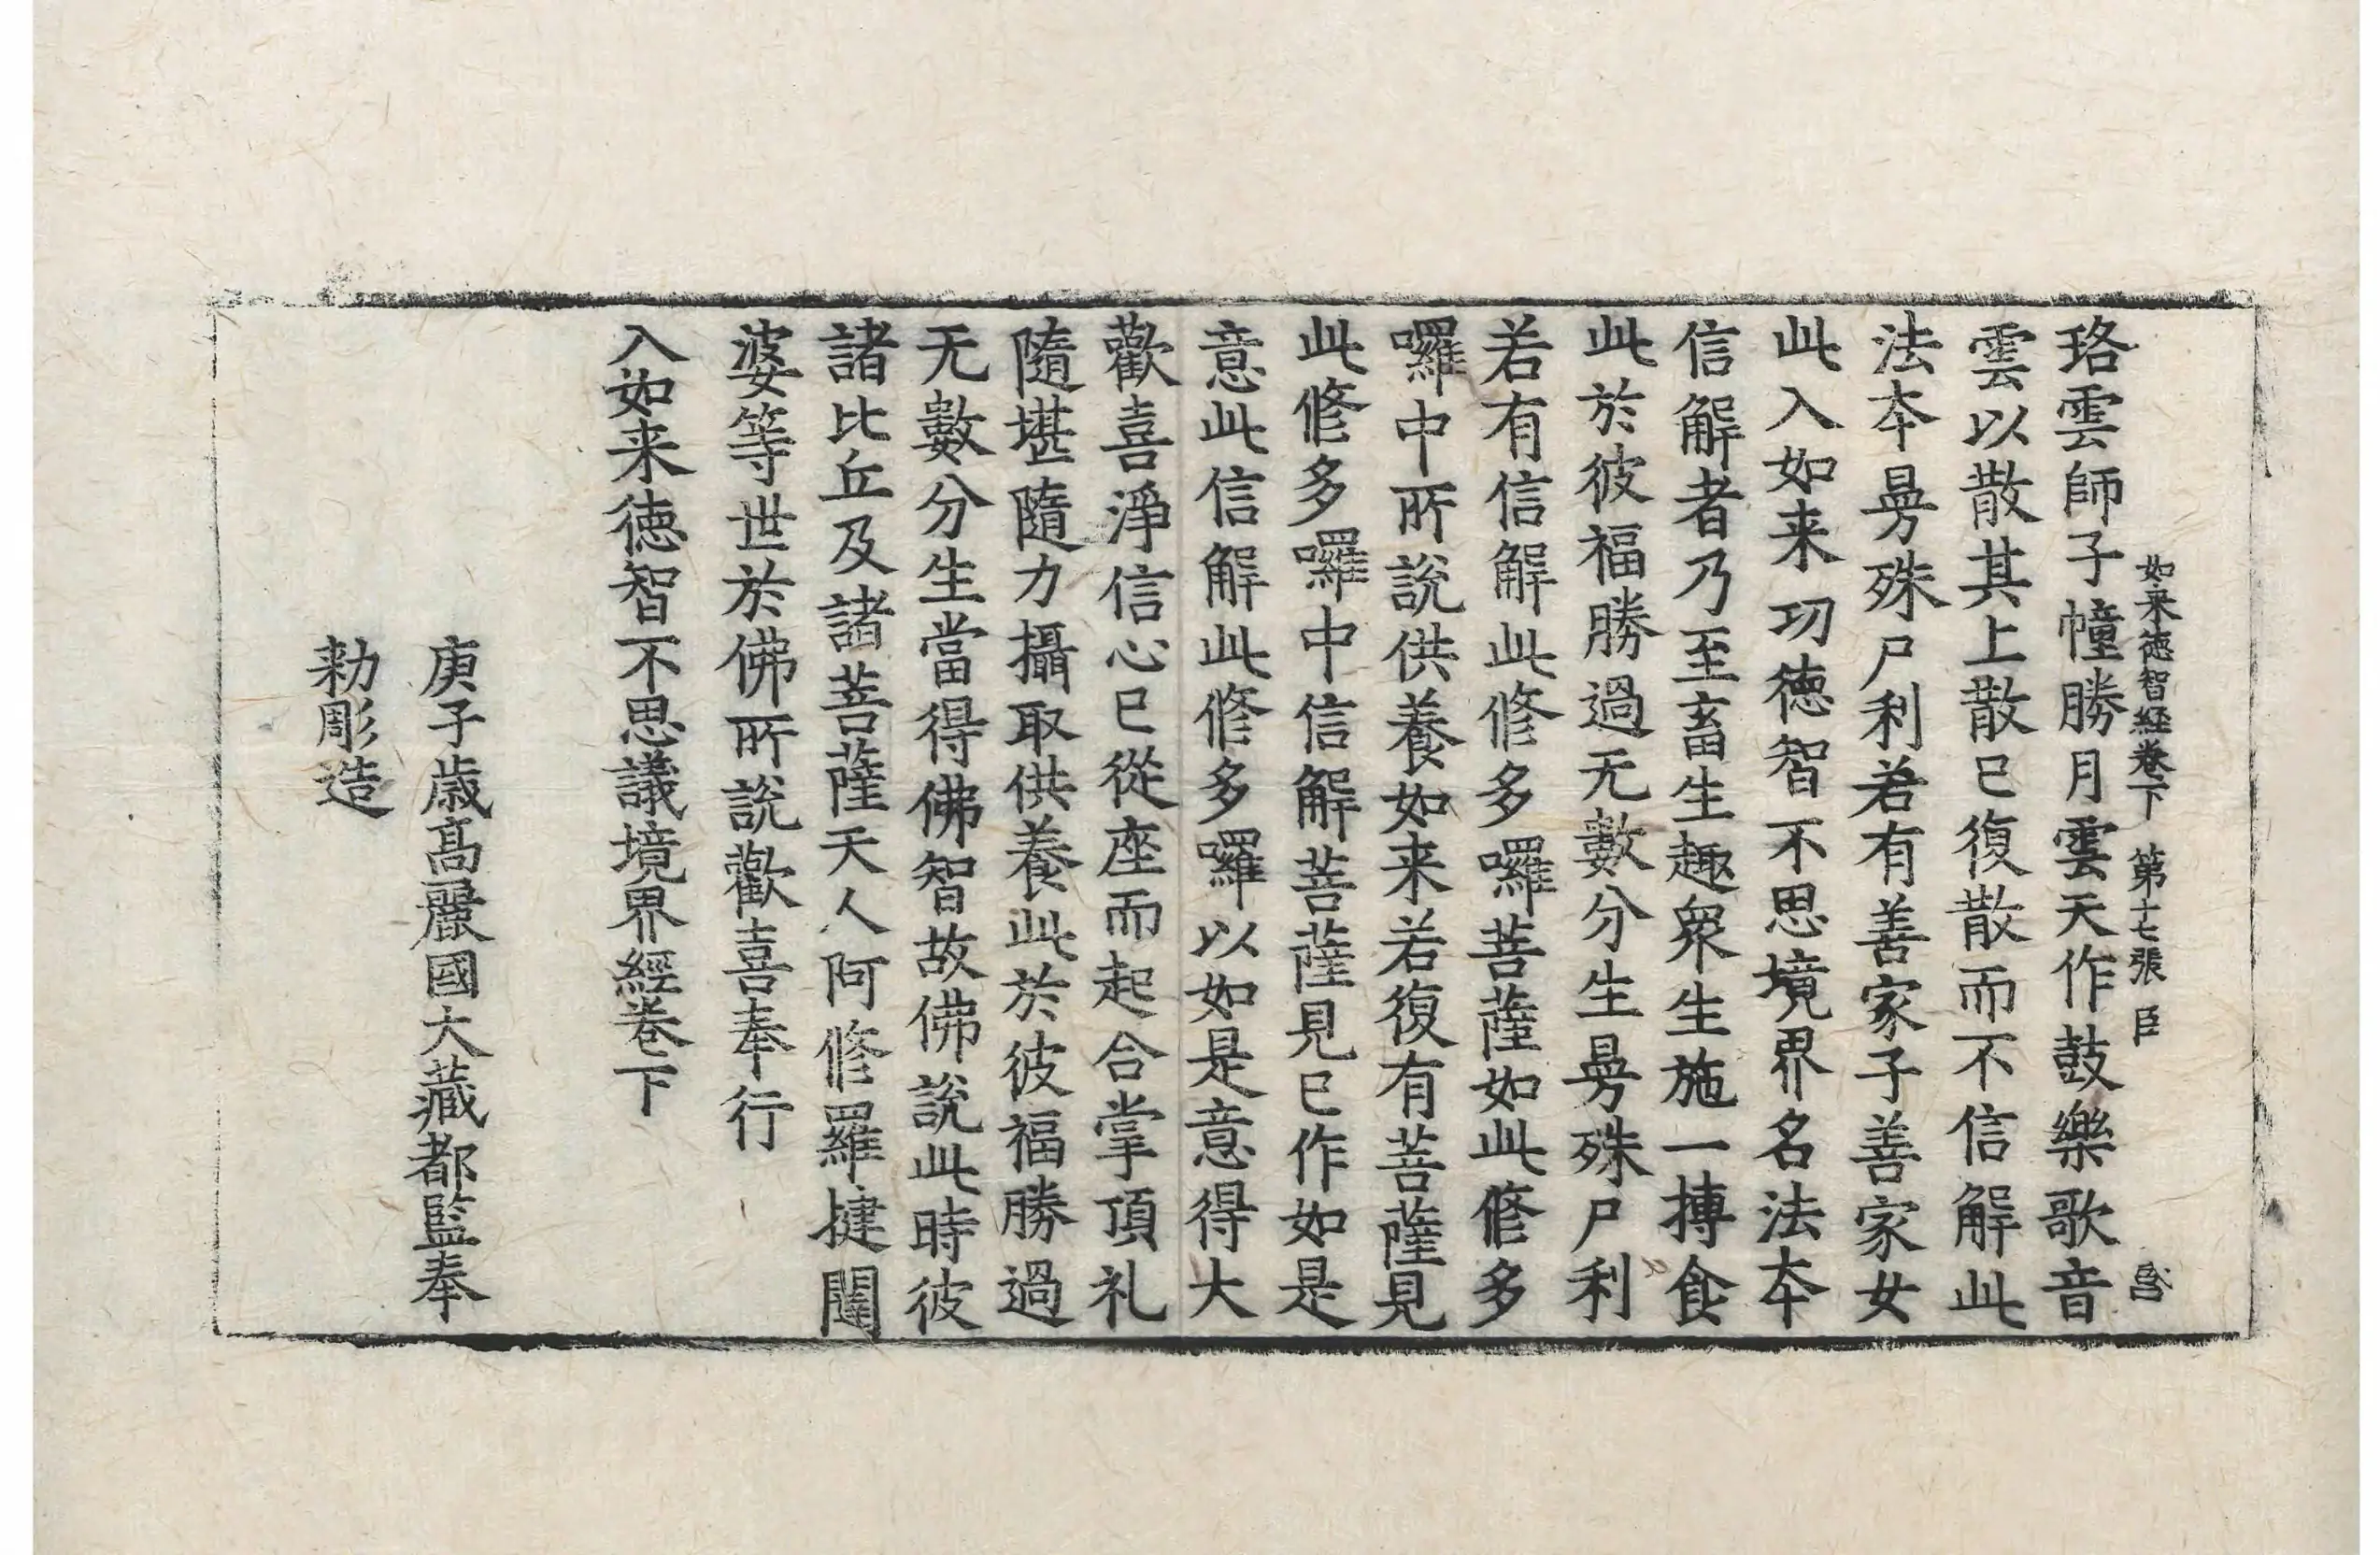 如来德智経卷下 第十七張 臣
珞雲師子幢勝月雲天作鼓樂歌音
雲以散其上散已復散而不信解此
法本曼殊尸利若有善家子善家女
此入如来功德智不思境界名法本
信解者乃至畜生趣衆生施一摶食
此於彼福勝過无數分生曼殊尸利
若有信解此修多囉菩薩如此修多
囉中所說供養如来若復有菩薩見
此修多囉中信解菩薩見已作如是
意此信解此修多囉以如是意得大
歡喜淨信心已從座而起合掌頂礼
隨堪隨力攝取供養此於彼福勝過
无數分生當得佛智故佛說此時彼
諸比丘及諸菩薩天人阿修羅揵闥
婆等世於佛所說歡喜奉行
入如来德智不思議境界經卷下
庚子歳髙麗國大藏都監奉
勑彫造